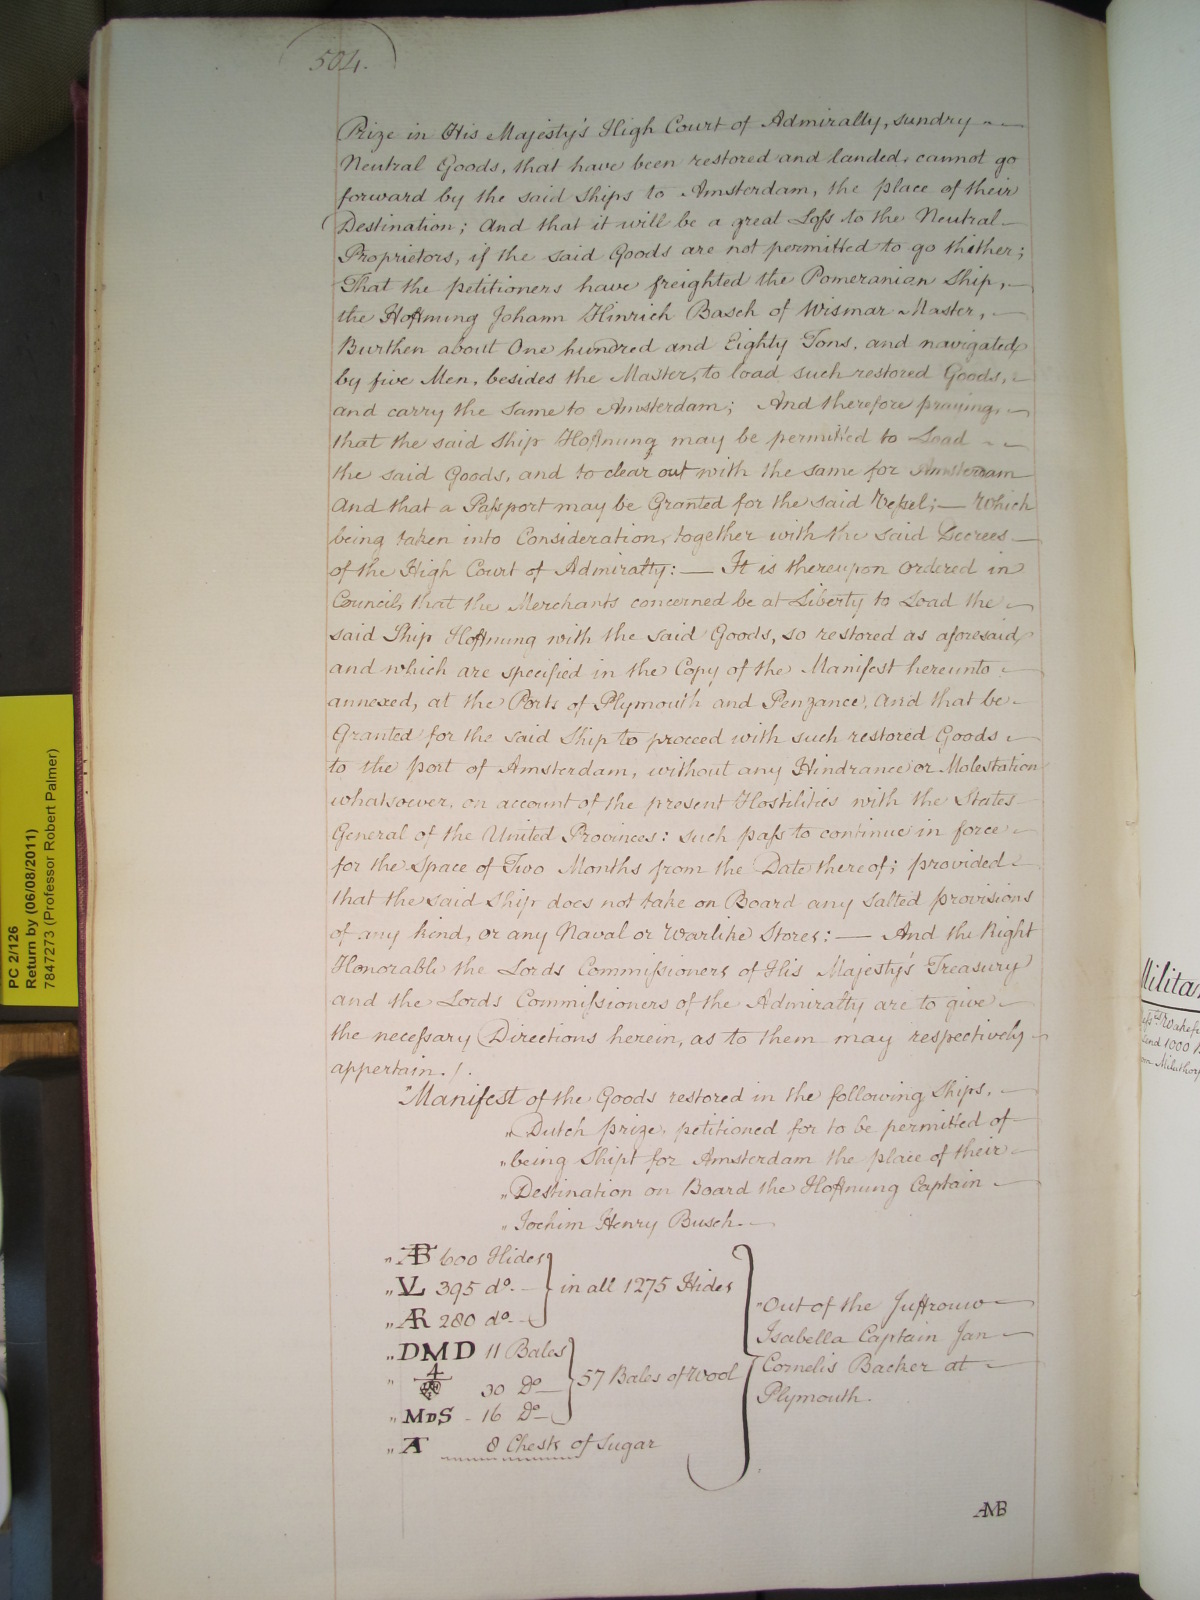 504.
Prize in His Majesty's High Court of Admiralty, sundry
Neutral Goods, that have been restored and landed, cannot go
forward by the said Ships to Amsterdam, the place of their
Destination; And that it will be a great Loss to the Neutral
Proprietors, if the said Goods are not permitted to go thither;
That the petitioners have freighted the Pomeranian Ship,
the Hoffnung Johann Hinrich Basch of Wismar Master,
Burthen about One hundred and Eighty Tons, and navigated
by five Men, besides the Master, to load such restored Goods,
and carry the same to Amsterdam; And therefore praying,
that the said Ship Hoffnung may be permitted to Load
the said Goods, and to clear out with the same for Amsterdam
And that a Passport may be Granted for the said Vessel; — Which
being taken into Consideration, together with the said Decrees
of the High Court of Admiralty: — It is thereupon Ordered in
Council, that the Merchants concerned be at Liberty to Load the
said Ship Hoffnung with the said Goods, so restored as aforesaid
and which are specified in the Copy of the Manifest hereunto
annexed, at the Ports of Plymouth and Penzance, And that be
Granted for the said Ship to proceed with such restored Goods
to the port of Amsterdam, without any Hindrance or Molestation
whatsoever, on account of the present Hostilities with the States
General of the United Provinces: such pass to continue in force
for the Space of Two Months from the Date thereof; provided
that the said Ship does not take on Board any salted provisions
of any kind, or any Naval or Warlike Stores: — And the Right
Honorable the Lords Commissioners of His Majesty's Treasury
and the Lords Commissioners of the Admiralty are to give
the necessary Directions herein, as to them may respectively
appertain. /.
"Manifest of the Goods restored in the following Ships,
"Dutch prize, petitioned for to be permitted of
"being Shipt for Amsterdam the place of their
"Destination on Board the Hoffnung Captain
"Jochim Henry Busch.
"AB 600 Hides
"VL 395 do. in all 1275 Hides
"AR 280 do.
"DMD 11 Bales
" 4 30 Do 57 Bales of Wool
"MDS - 16 Do
"A 8 Chests of Sugar
"Out of the Juffrouw
Isabella Captain Jan
Cornelis Backer at
Plymouth.
AMB
PC 2/126
Return by (06/08/2011)
7847273 (Professor Robert Palmer)